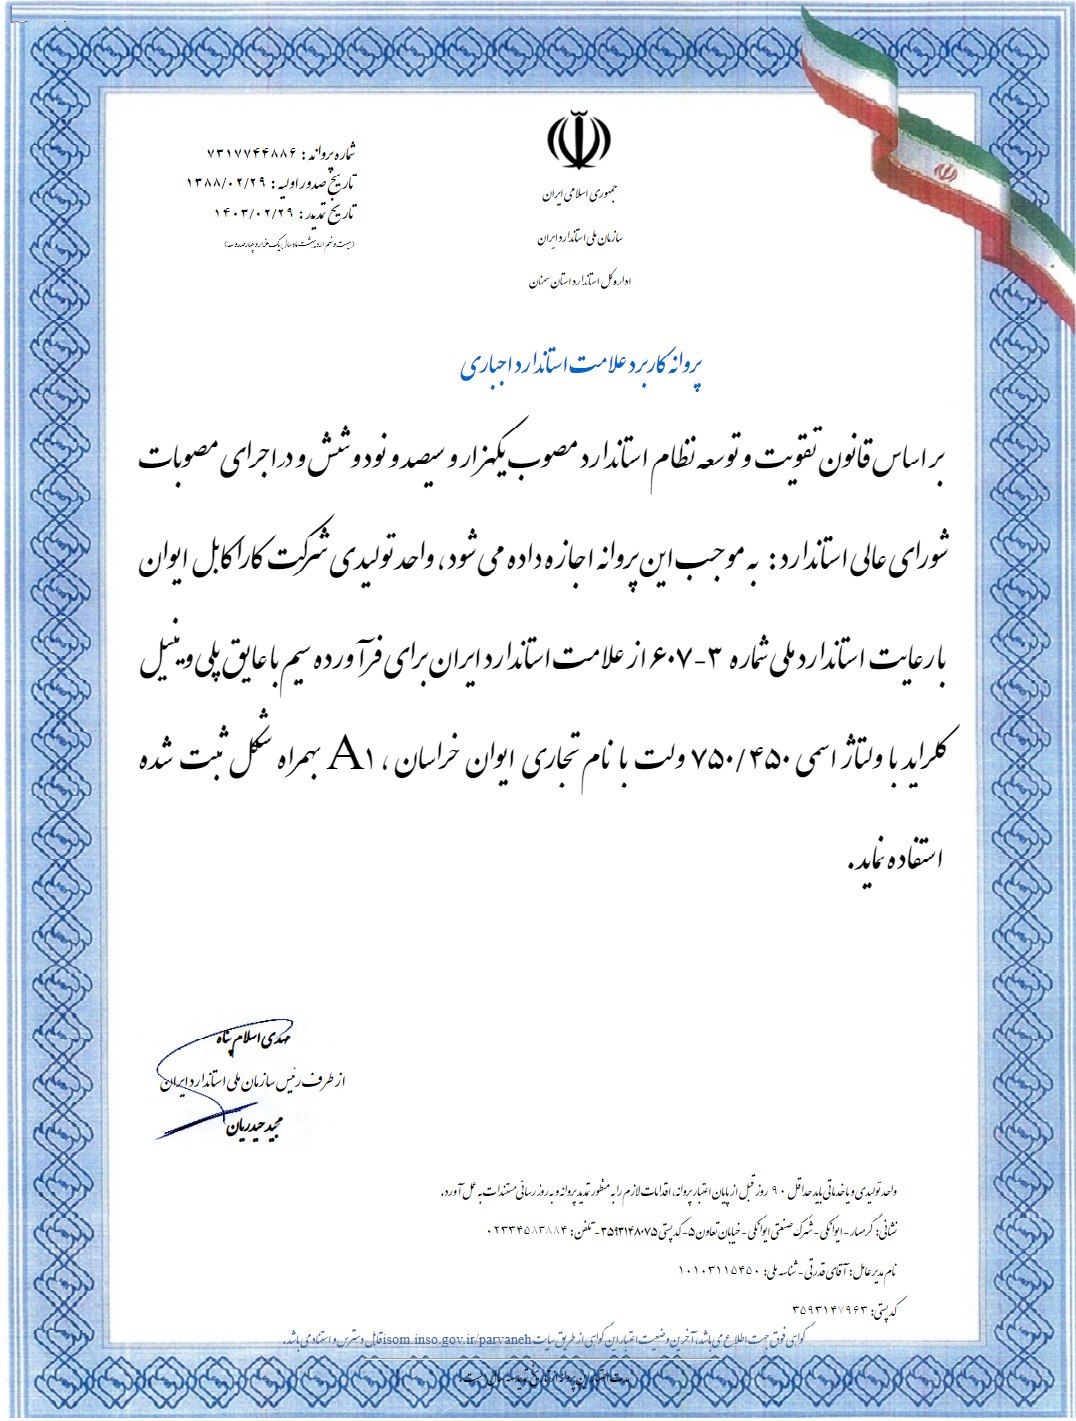 جمهوری اسلامی ایران
سازمان ملی استاندارد ایران
اداره کل استاندارد استان سمنان
شماره پروانه : ۷۳۱۷۷۴۴۸۸۶
تاریخ صدور اولیه : ۱۳۸۸/۰۲/۲۹
تاریخ تمدید : ۱۴۰۳/۰۲/۲۹
(بیست و نهم اردیبهشت ماه سال یک هزار و چهارصد و سه)
پروانه کاربرد علامت استاندارد اجباری
بر اساس قانون تقویت و توسعه نظام استاندارد مصوب یکهزار و سیصد و نود و شش و در اجرای مصوبات
شورای عالی استاندارد : به موجب این پروانه اجازه داده می شود، واحد تولیدی شرکت کارا کابل ایوان
با رعایت استاندارد ملی شماره ۳-۶۰۷ از علامت استاندارد ایران برای فرآورده سیم با عایق پلی وینیل
کلراید با ولتاژ اسمی ۷۵۰/۴۵۰ ولت با نام تجاری ایوان خراسان ، A۱ بهمراه شکل ثبت شده
استفاده نماید.
مهدی اسلام پناه
از طرف رئیس سازمان ملی استاندارد ایران
مجید حیدریان
واحد تولیدی و یا خدماتی باید حداقل ۹۰ روز قبل از پایان اعتبار پروانه، اقدامات لازم را به منظور تمدید پروانه و به روز رسانی مستندات به عمل آورد.
نشانی: گرمسار - ایوانکی - شهرک صنعتی ایوانکی - خیابان تعاون ۵ - کد پستی ۳۵۹۳۱۴۸۰۷۵ - تلفن: ۰۲۳۳۴۵۸۳۸۸۴
نام مدیر عامل: آقای قدرتی - شناسه ملی: ۱۰۱۰۳۱۱۵۴۵۰
کد پستی: ۳۵۹۳۱۴۷۹۶۳
گواهی فوق جهت اطلاع می باشد، آخرین وضعیت اعتبار این گواهی از طریق سایت isom.inso.gov.ir/parvaneh قابل دسترس و استناد می باشد.
مدت اعتبار این پروانه از تاریخ تمدید سه سال است.